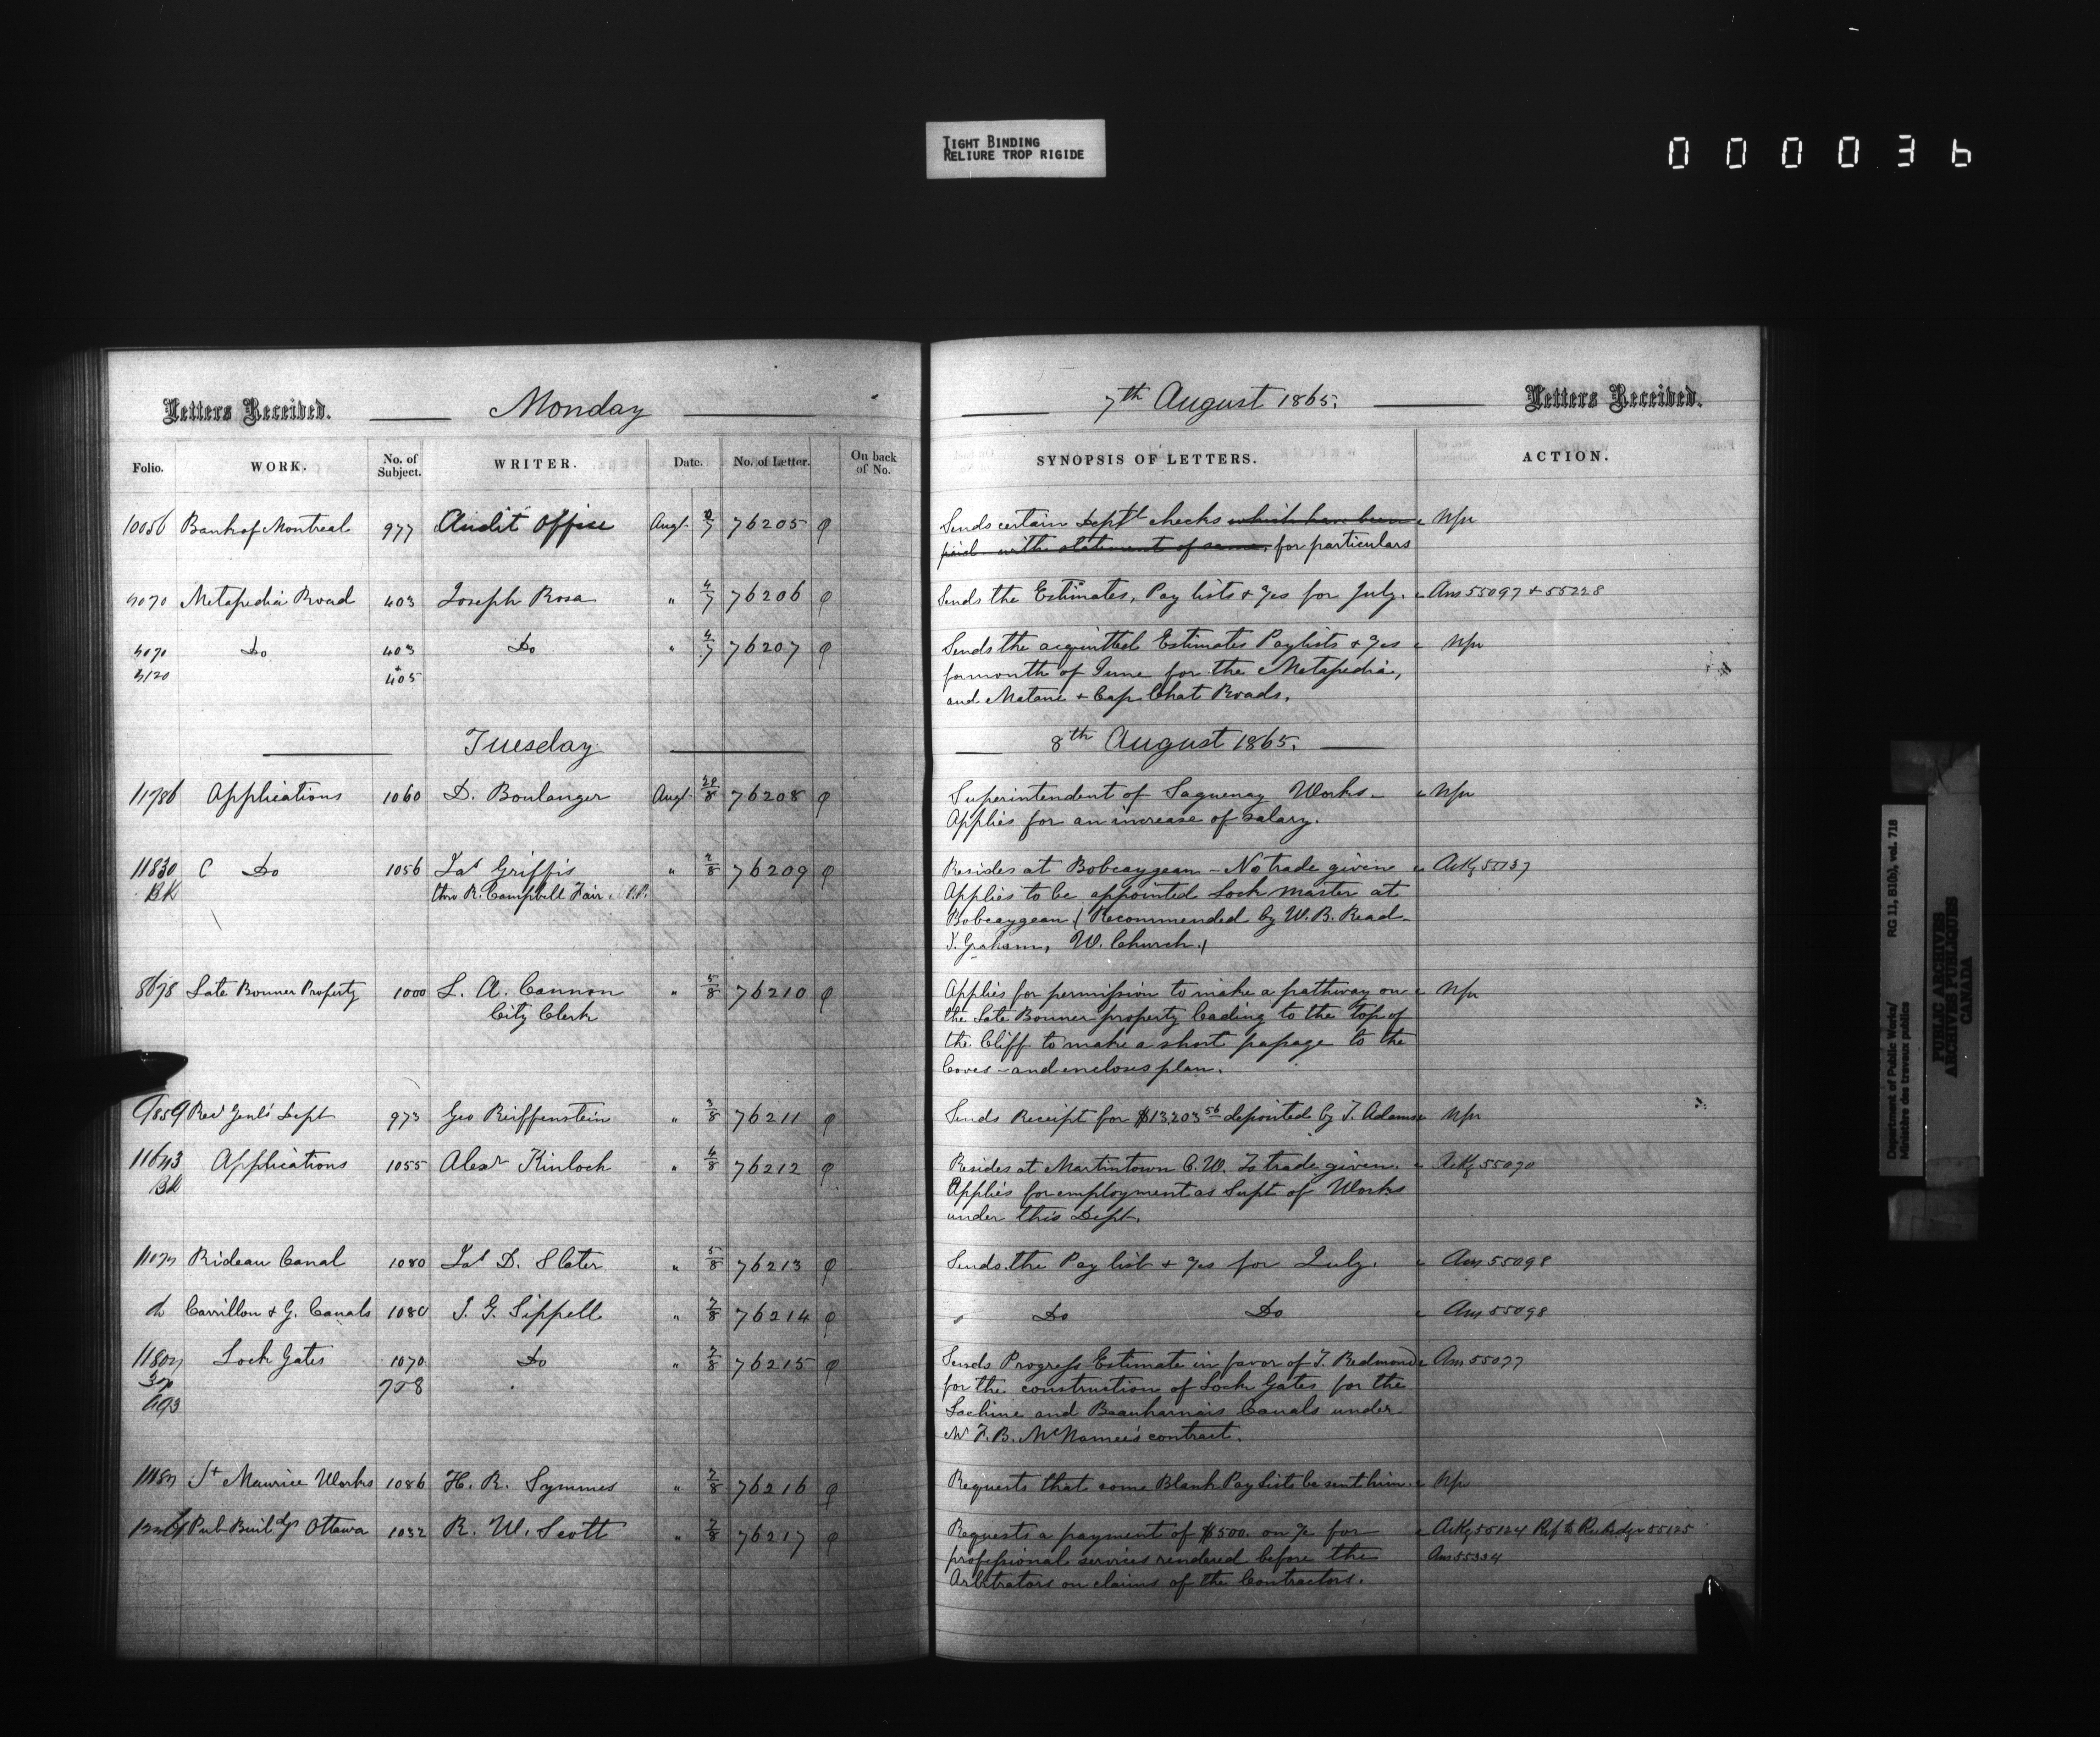 TIGHT BINDING
RELIURE TROP RIGIDE
000036
Letters Received. Monday 7th August 1865. Letters Received.
Folio. WORK. No. of Subject. WRITER. Date. No. of Letter. On back of No. SYNOPSIS OF LETTERS. ACTION.
10056 Bank of Montreal 977 Audit Office Augt 7 76205 Sends certain Deptl checks which have been
paid with statement of same, for particulars
Metapedia Road 403 Joseph Rosa " 4/7 76206 Sends the Estimates, Pay lists & Jes for July. Ans 55097 & 55228
Do 403 Do " 4/7 76207 Sends the acquitted Estimates Paylists & Jes
& 405 for month of June for the Metapedia,
and Matane & Cap Chat Roads.
Tuesday 8th August 1865.
11786 Applications 1060 D. Boulanger Augt 29/8 76208 Superintendent of Saguenay Works.
Applies for an increase of Salary.
11830 C Do 1056 Jas Griffis " 76209 Resides at Bobcaygean - No trade given Ackg 55137
BK thro R. Campbell Fair, P.P. Applies to be appointed Lock Master at
Bobcaygean (Recommended by W. B. Read
J. Graham, W. Church.)
8678 Late Bonner Property 1000 L. A. Cannon " 5/8 76210 Applies for permission to make a pathway on
City Clerk the Late Bonner property leading to the top of
the Cliff to make a short passage to the
Coves - and encloses plan.
9859 Rec Genl's Dept 973 Geo Reiffenstein " 3/8 76211 Sends Receipt for $13,203 56 deposited by J. Adams
11643 Applications 1055 Alexr Kinloch " 4/8 76212 Resides at Martintown C.W. No trade given. Ackg 55090
Bk Applies for employment as Supt of Works
under this Dept.
Rideau Canal 1080 Jas D. Slater " 5/8 76213 Sends the Pay list & Jes for July. Ans 55098
do Carrillon & G. Canals 1080 J. G. Sippell " 7/8 76214 " Do Do Ans 55098
Lock Gates 1070 Do " 7/8 76215 Sends Progress Estimate in favor of J. Redmond Ans 55077
758 for the construction of Lock Gates for the
Lachine and Beauharnais Canals under
Mr F. B. McNamee's contract.
St Maurice Works 1086 H. R. Symmes " 7/8 76216 Requests that some Blank Pay Lists be sent him.
Pub Buildgs Ottawa 1032 R. W. Scott " 7/8 76217 Requests a payment of $500. on % for Ackg 55124 55125
professional services rendered before the Ans 55334
Arbitrators on claims of the Contractors.
Department of Public Works/ RG 11, B1(b), vol. 718
Ministère des travaux publics
PUBLIC ARCHIVES
ARCHIVES PUBLIQUES
CANADA